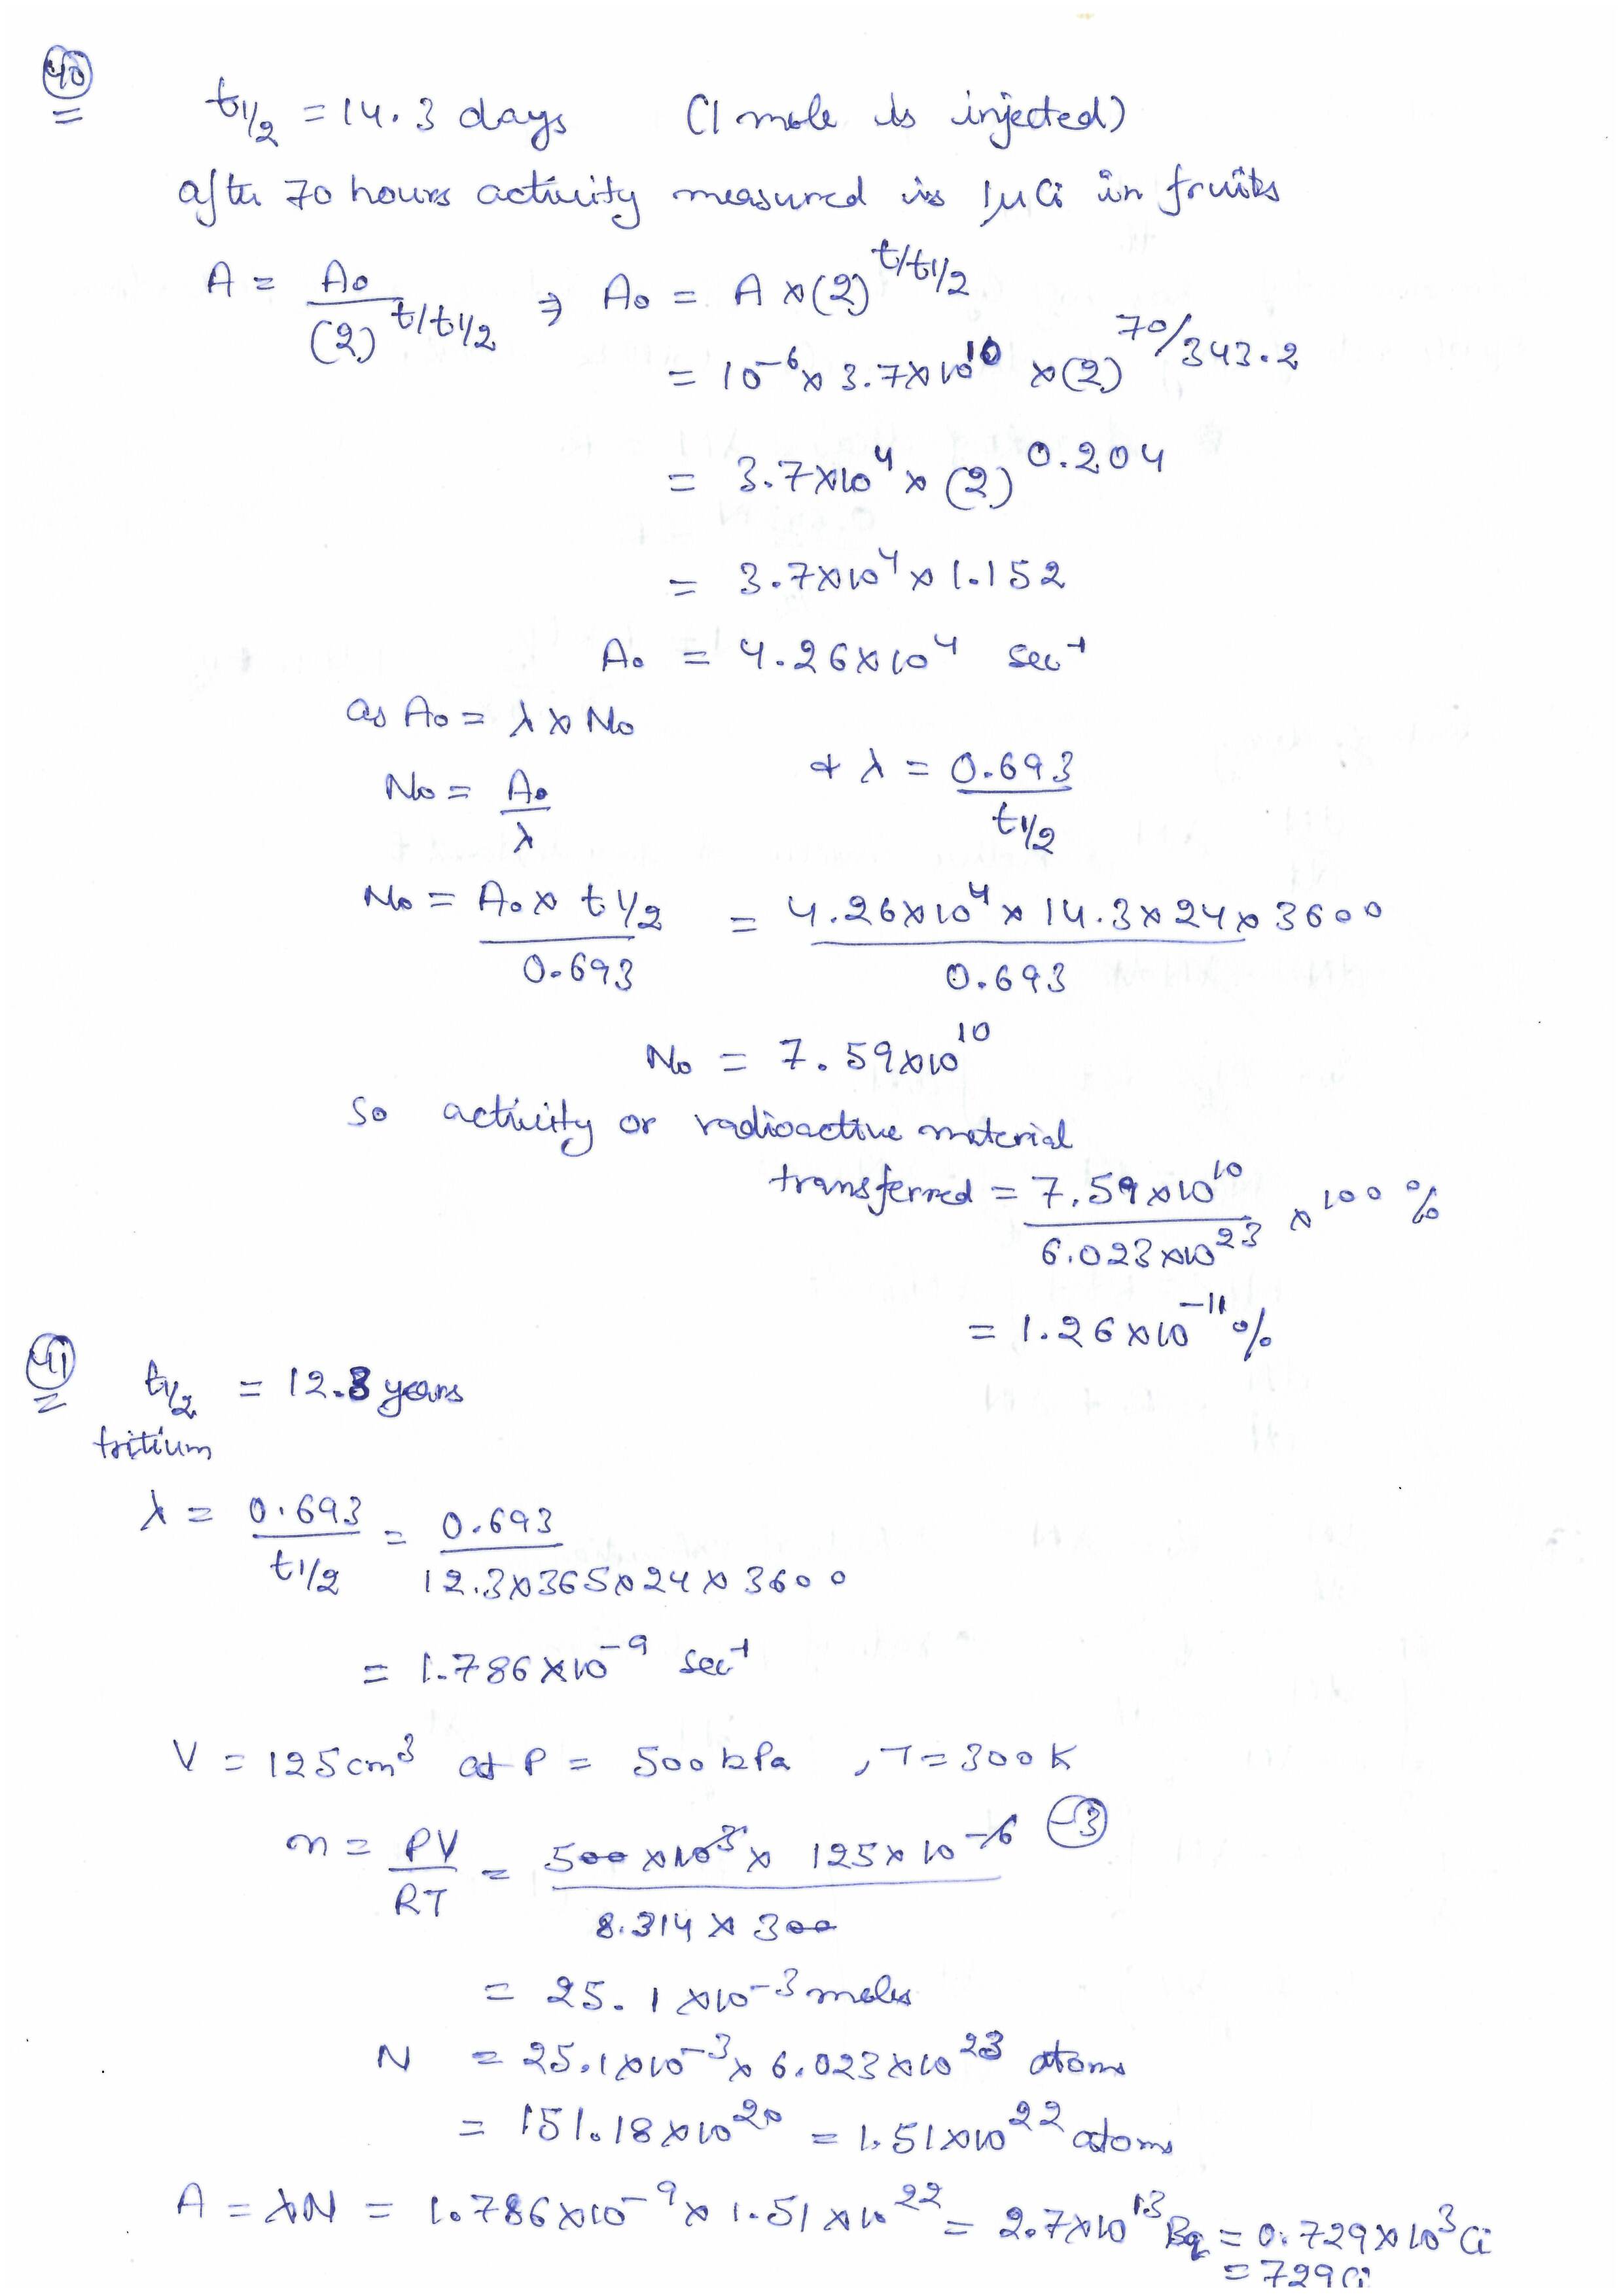 40
t1/2 = 14.3 days (1 mole is injected)
after 70 hours activity measured is 1μCi in fruits
A = A₀/(2)^(t/t1/2) ⇒ A₀ = A × (2)^(t/t1/2)
= 10⁻⁶ × 3.7×10¹⁰ × (2)^(70/343.2)
= 3.7×10⁴ × (2)^0.204
= 3.7×10⁴ × 1.152
A₀ = 4.26×10⁴ sec⁻¹
as A₀ = λ × N₀
N₀ = A₀/λ & λ = 0.693/t1/2
N₀ = A₀ × t1/2 / 0.693 = 4.26×10⁴ × 14.3 × 24 × 3600 / 0.693
N₀ = 7.59×10¹⁰
So activity or radioactive material
transferred = 7.59×10¹⁰ / 6.023×10²³ × 100 %
= 1.26×10⁻¹¹ %
41
t1/2 = 12.3 years
tritium
λ = 0.693/t1/2 = 0.693 / 12.3×365×24×3600
= 1.786×10⁻⁹ sec⁻¹
V = 125 cm³ at P = 500 kPa , T = 300 K
n = PV/RT = 500×10³ × 125×10⁻⁶ / 8.314 × 300 -3
= 25.1×10⁻³ moles
N = 25.1×10⁻³ × 6.023×10²³ atoms
= 151.18×10²⁰ = 1.51×10²² atoms
A = λN = 1.786×10⁻⁹ × 1.51×10²² = 2.7×10¹³ Bq = 0.729×10³ Ci
= 729 Ci